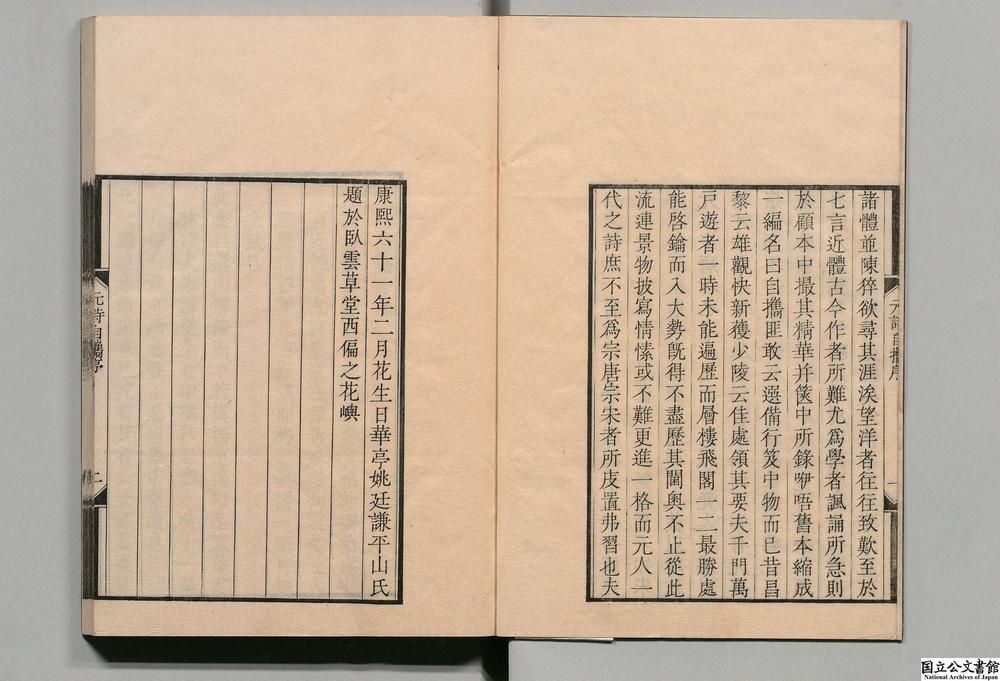 諸體並陳猝欲尋其涯涘望洋者往往致歎至於
七言近體古今作者所難尤爲學者諷誦所急則
於顧本中撮其精華并篋中所錄咿唔舊本縮成
一編名曰自攜匪敢云選備行笈中物而已昔昌
黎云雄觀快新獲少陵云佳處領其要夫千門萬
戸遊者一時未能遍歷而層樓飛閣一二最勝處
能啓鑰而入大勢旣得不盡歷其閫奧不止從此
流連景物披寫情愫或不難更進一格而元人一
代之詩庶不至爲宗唐宗宋者所庋置弗習也夫
元詩自攜序
一
康熙六十一年二月花生日華亭姚廷謙平山氏
題於臥雲草堂西偏之花嶼
元詩自攜序
二
国立公文書館
National Archives of Japan